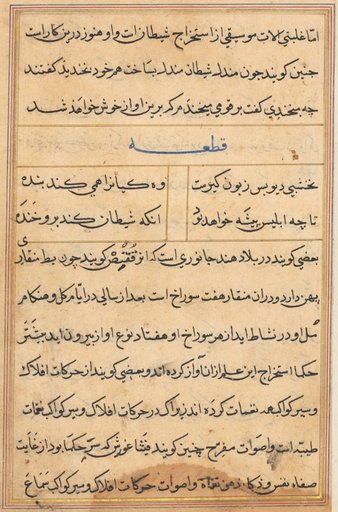 اما غلبتی آلات موسیقی از استخراج شیطان است و او هنوز درین کار است
چنین کویند چون مندل شیطان مندل بساخت هم خود نخندید کفتند
چه میخندی کفت بر قومی میخندم که برین آواز خوش خواهند شد
قطعه
نخشبی دیو بس زبون کیرست وه کیانرا همی کند بنده
تا چه ابلیس پیشه خواهد بود آنکه شیطان کند برو خنده
بعضی کویند در بلاد هند جانوری است که انرا ققنس کویند چون بط منقاری
پهن دارد و در ان منقار هفت سوراخ است بعد از سالی در ایام کل و هنکام
مل او در نشاط اید از هر سوراخ او هفتاد نوع اواز بیرون اید بیشتر
حکما استخراج این علم از ان آواز کرده اند و بعضی کویند از حرکات افلاک
و سیر کواکب نغمات کرده اند زیراک در حرکات افلاک و سیر کواکب نغمات
طیبه است و اصوات مفرح چنین کویند فیثاغورث که سر حکما بود از غایت
صفاء نفس و زکاء ذهن نغمات و اصوات حرکات افلاک و سیر کواکب سماع